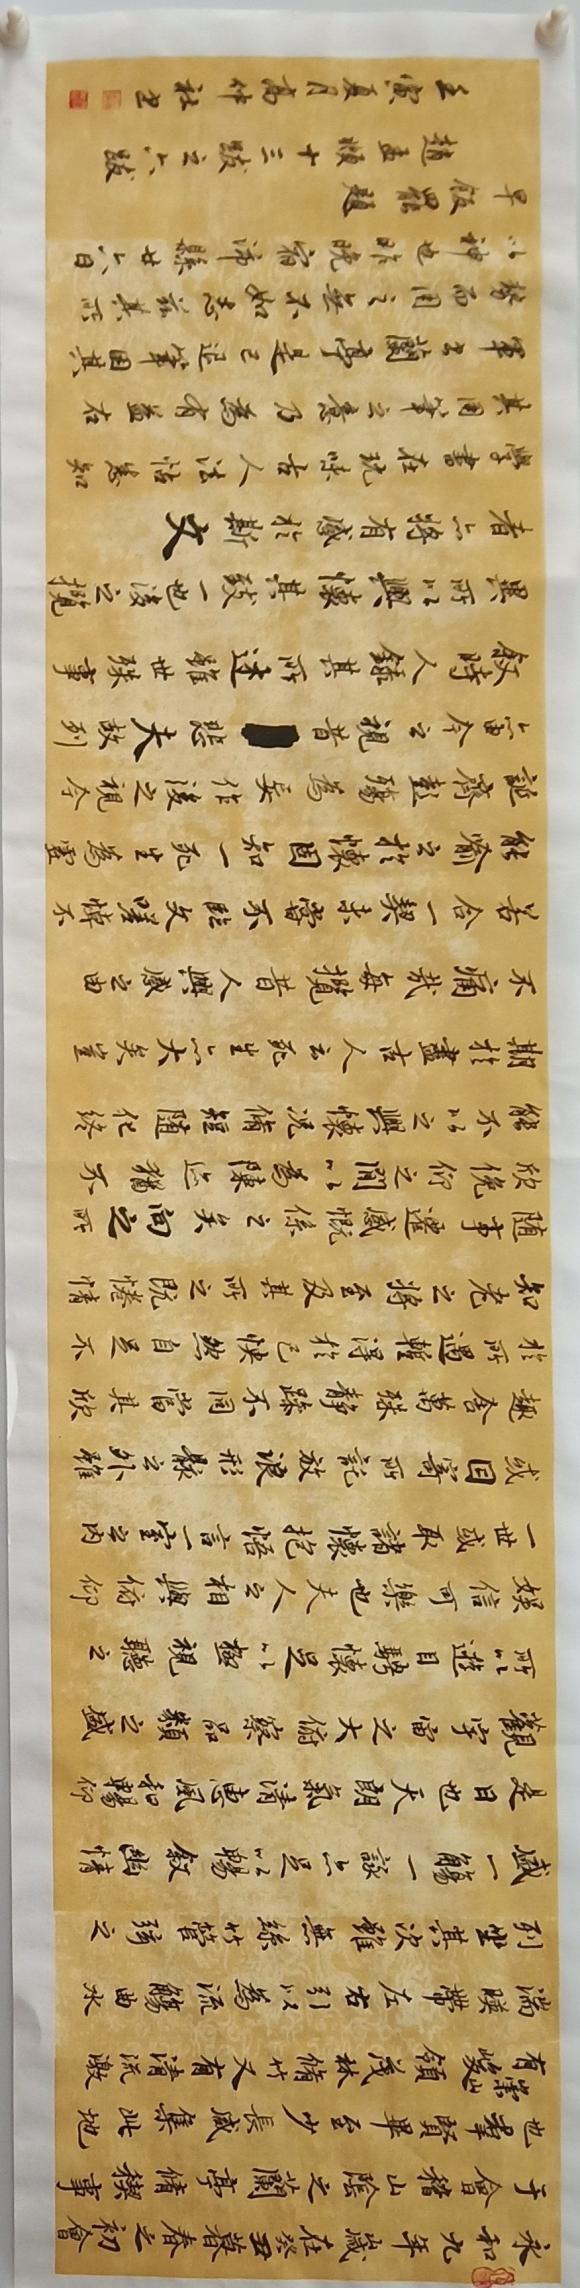 永和九年歲在癸丑暮春之初會
于會稽山陰之蘭亭脩稧事
也羣賢畢至少長咸集此地
有崇山峻領茂林脩竹又有清流激
湍暎帶左右引以為流觴曲水
列坐其次雖無絲竹管弦之
盛一觴一詠亦足以暢敘幽情
是日也天朗氣清惠風和暢仰
觀宇宙之大俯察品類之盛
所以遊目騁懷足以極視聽之
娛信可樂也夫人之相與俯仰
一世或取諸懷抱悟言一室之內
或因寄所託放浪形骸之外雖
趣舍萬殊靜躁不同當其欣
於所遇暫得於己怏然自足不
知老之將至及其所之既惓情
隨事遷感慨係之矣向之所
欣俛仰之間以為陳迹猶不
能不以之興懷況脩短隨化終
期於盡古人云死生亦大矣豈
不痛哉每攬昔人興感之由
若合一契未嘗不臨文嗟悼不
能喻之於懷固知一死生為虛
誕齊彭殤為妄作後之視今
亦由今之視昔悲夫故列
敘時人錄其所述雖世殊事
異所以興懷其致一也後之攬
者亦將有感於斯文
學書在玩味古人法帖悉知
其用筆之意乃為有益右
軍書蘭亭是已退筆因其
勢而用之無不如志茲其所
以神也昨晚宿沛縣廿六日
早飯罷題
趙孟頫十三跋之六跋
壬寅夏月高仲社書